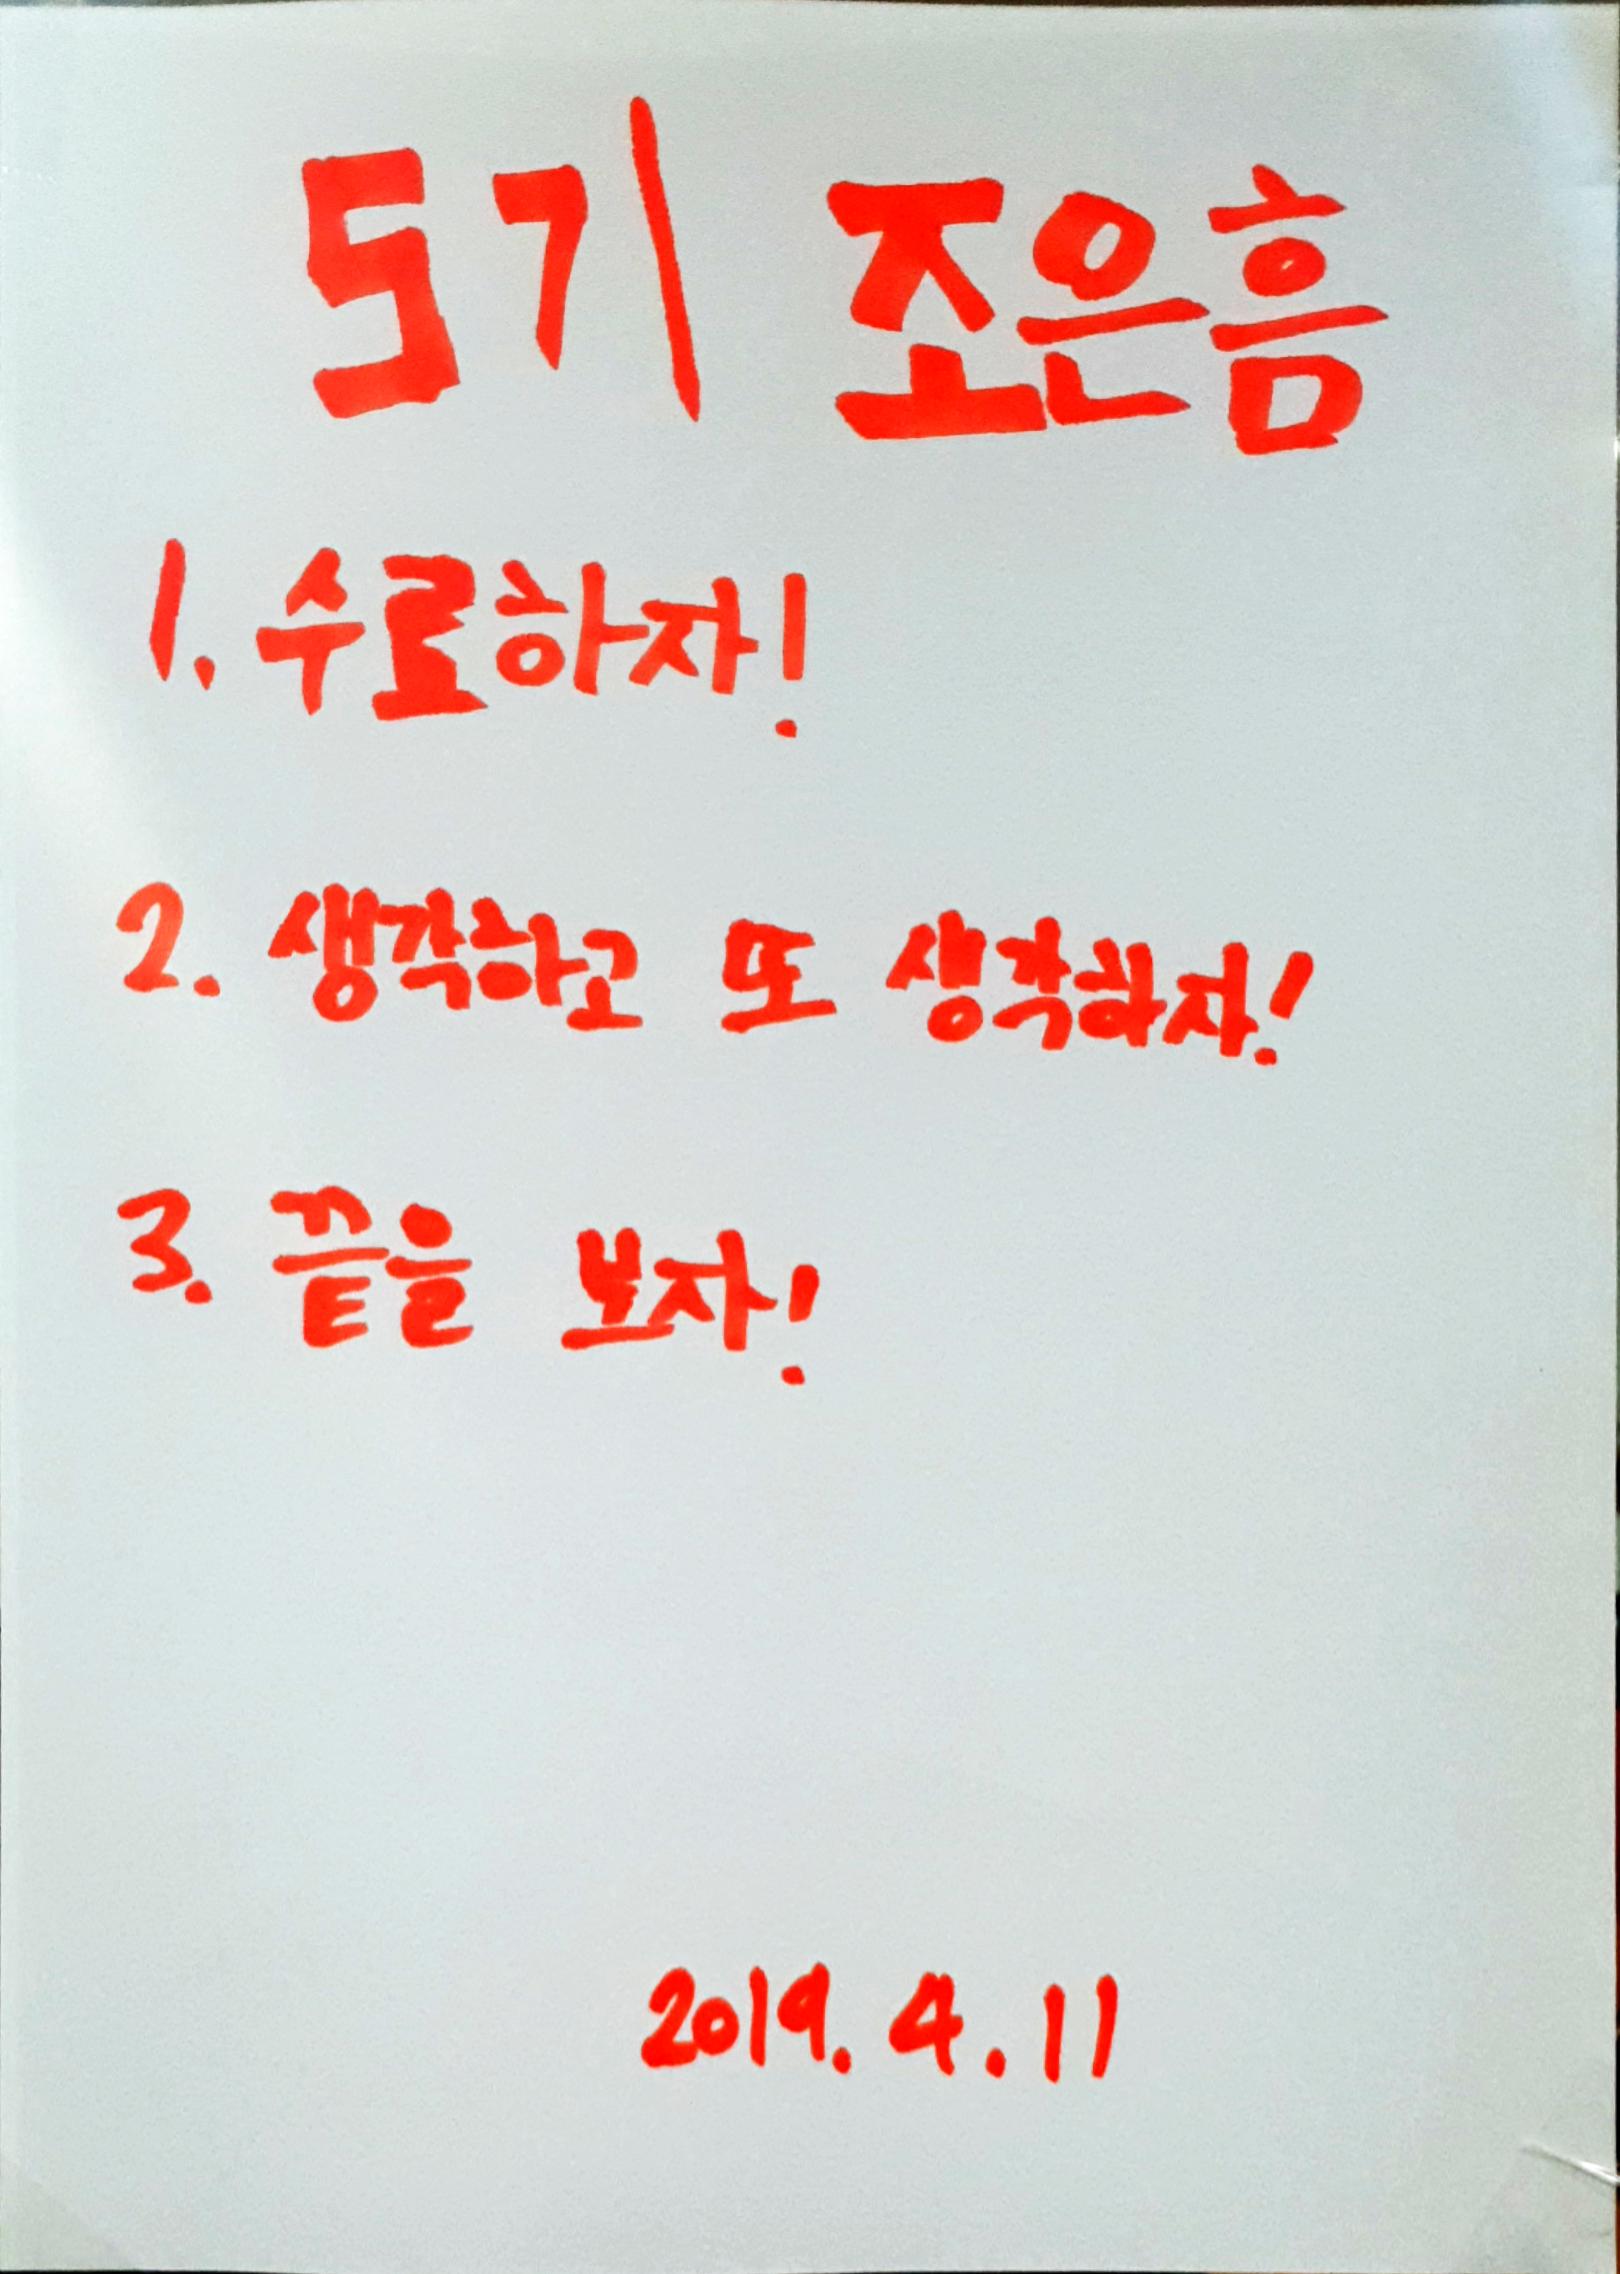 5기 조은흠
1. 수료하자!
2. 생각하고 또 생각하자!
3. 끝을 보자!
2019. 4. 11